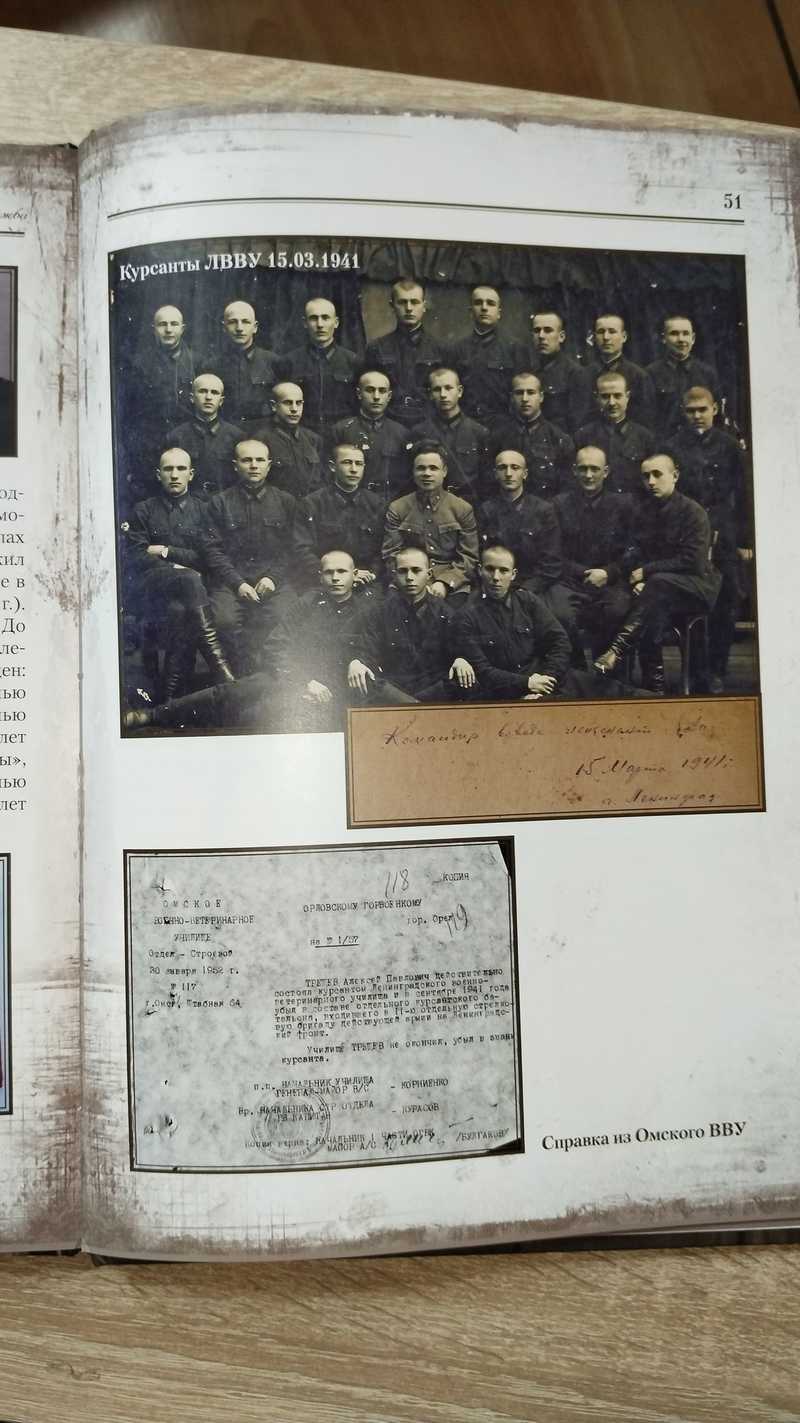 51
Курсанты ЛВВУ 15.03.1941
од-
мо-
лах
жил
е в
г.).
До
ле-
ден:
лью
лью
лет
ы»,
лью
лет
Командир взвода лейтенант
15 Марта 1941 г.
г. Ленинград
118
КОПИЯ
ОМСКОЕ
ВОЕННО-ВЕТЕРИНАРНОЕ
УЧИЛИЩЕ
Отдел - Строевой
30 января 1952 г.
№ 117
г.Омск, Штабная 64
ОРЛОВСКОМУ ГОРВОЕНКОМУ
гор. Орел
119
на № 1/57
ТРЕТЕВ Алексей Павлович действительно
состоял курсантом Ленинградского военно-
ветеринарного училища и в сентябре 1941 года
убыл в составе отдельного курсантского ба-
тальона, входившего в 11-ю отдельную стрелко-
вую бригаду действующей армии на Ленинградс-
кий фронт.
Училище ТРЕТЕВ не окончил, убыл в звании
курсанта.
п.п. НАЧАЛЬНИК УЧИЛИЩА
ГЕНЕРАЛ-МАЙОР В/С - КОРНИЕНКО
Вр. НАЧАЛЬНИКА СТР ОТДЕЛА
КАПИТАН - КУРАСОВ
Копия верна: НАЧАЛЬНИК 1 ЧАСТИ
МАЙОР А/С /БУЛГАКОВ/
Справка из Омского ВВУ